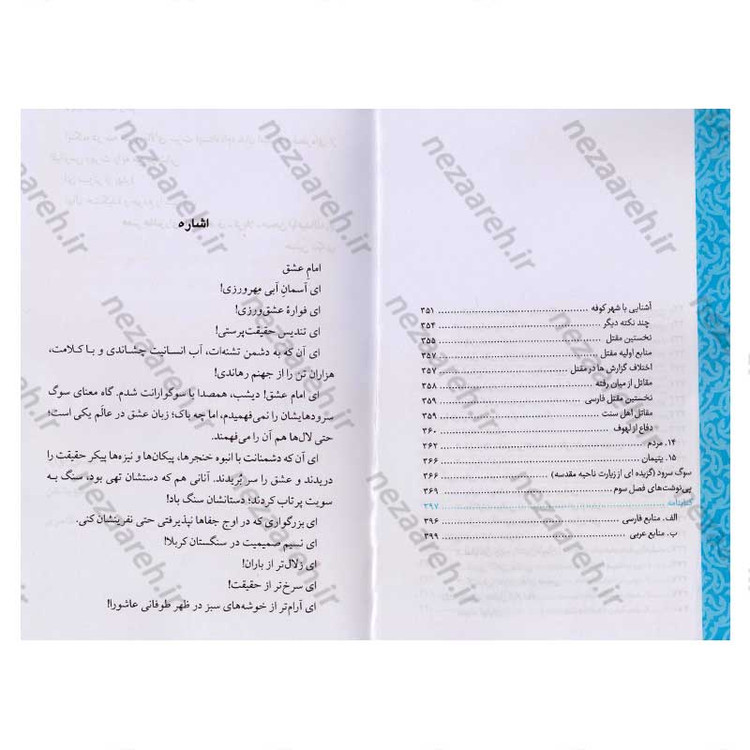 آشنایی با شهر کوفه ........ ۳۵۱
چند نکته دیگر ........ ۳۵۴
نخستین مقتل ........ ۳۵۵
منابع اولیه مقتل ........ ۳۵۷
اختلاف گزارش ها در مقتل ........ ۳۵۷
مقاتل از میان رفته ........ ۳۵۸
نخستین مقتل فارسی ........ ۳۵۹
مقاتل اهل سنت ........ ۳۵۹
دفاع از لهوف ........ ۳۶۰
۱۴. مردم ........ ۳۶۲
۱۵. یتیمان ........ ۳۶۶
سوگ سرود (گزیده ای از زیارت ناحیه مقدسه) ........ ۳۶۶
پی‌نوشت‌های فصل سوم ........ ۳۶۹
کتابنامه ........ ۳۹۷
الف. منابع فارسی ........ ۳۹۶
ب. منابع عربی ........ ۳۹۹
اشاره
امام عشق
ای آسمانِ آبی مِهرورزی!
ای فوارهٔ عشق‌ورزی!
ای تندیس حقیقت‌پرستی!
ای آن که به دشمن تشنه‌ات، آب انسانیت چشاندی و با کلامت،
هزاران تن را از جهنم رهاندی!
ای امام عشق! دیشب، همصدا با سوگوارانت شدم. گاه معنای سوگ
سرودهایشان را نمی‌فهمیدم، اما چه باک؛ زبان عشق در عالَم یکی است؛
حتی لال‌ها هم آن را می‌فهمند.
ای آن که دشمنانت با انبوه خنجرها، پیکان‌ها و نیزه‌ها پیکر حقیقت را
دریدند و عشق را سر بُریدند. آنانی هم که دستشان تهی بود، سنگ به
سویت پرتاب کردند؛ دستانشان سنگ باد!
ای بزرگواری که در اوج جفاها نپذیرفتی حتی نفرینشان کنی.
ای نسیم صمیمیت در سنگستان کربلا!
ای زلال‌تر از باران!
ای سرخ‌تر از حقیقت!
ای آرام‌تر از خوشه‌های سبز در ظهر طوفانی عاشورا!
nezaareh.ir
nezaareh.ir
nezaareh.ir
nezaareh.ir
nezaareh.ir
nezaareh.ir
nezaareh.ir
nezaareh.ir
nezaareh.ir